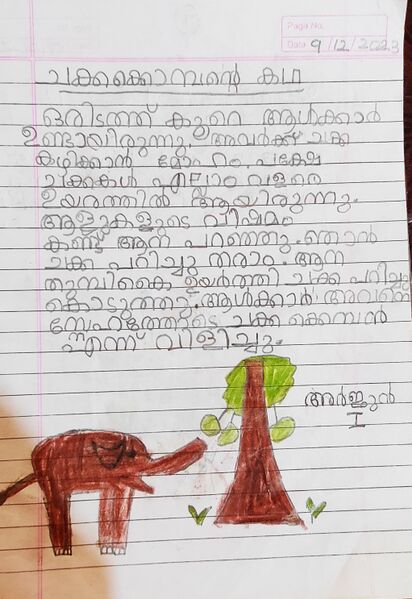 Page No.
Date 9/12/2023
ചക്കക്കൊമ്പന്റെ കഥ
ഒരിടത്ത് കുറെ ആൾക്കാർ
ഉണ്ടായിരുന്നു. അവർക്ക് ചക്ക
കഴിക്കാൻ മോഹം. പക്ഷേ
ചക്കകൾ എല്ലാം വളരെ
ഉയരത്തിൽ ആയിരുന്നു.
ആളുകളുടെ വിഷമം
കണ്ട് ആന പറഞ്ഞു. ഞാൻ
ചക്ക പറിച്ചു തരാം. ആന
തുമ്പികൈ ഉയർത്തി ചക്ക പറിച്ചു
കൊടുത്തു. ആൾക്കാർ അവനെ
സ്നേഹത്തോടെ ചക്ക കൊമ്പൻ
എന്ന് വിളിച്ചു.
അർജ്ജുൻ
I